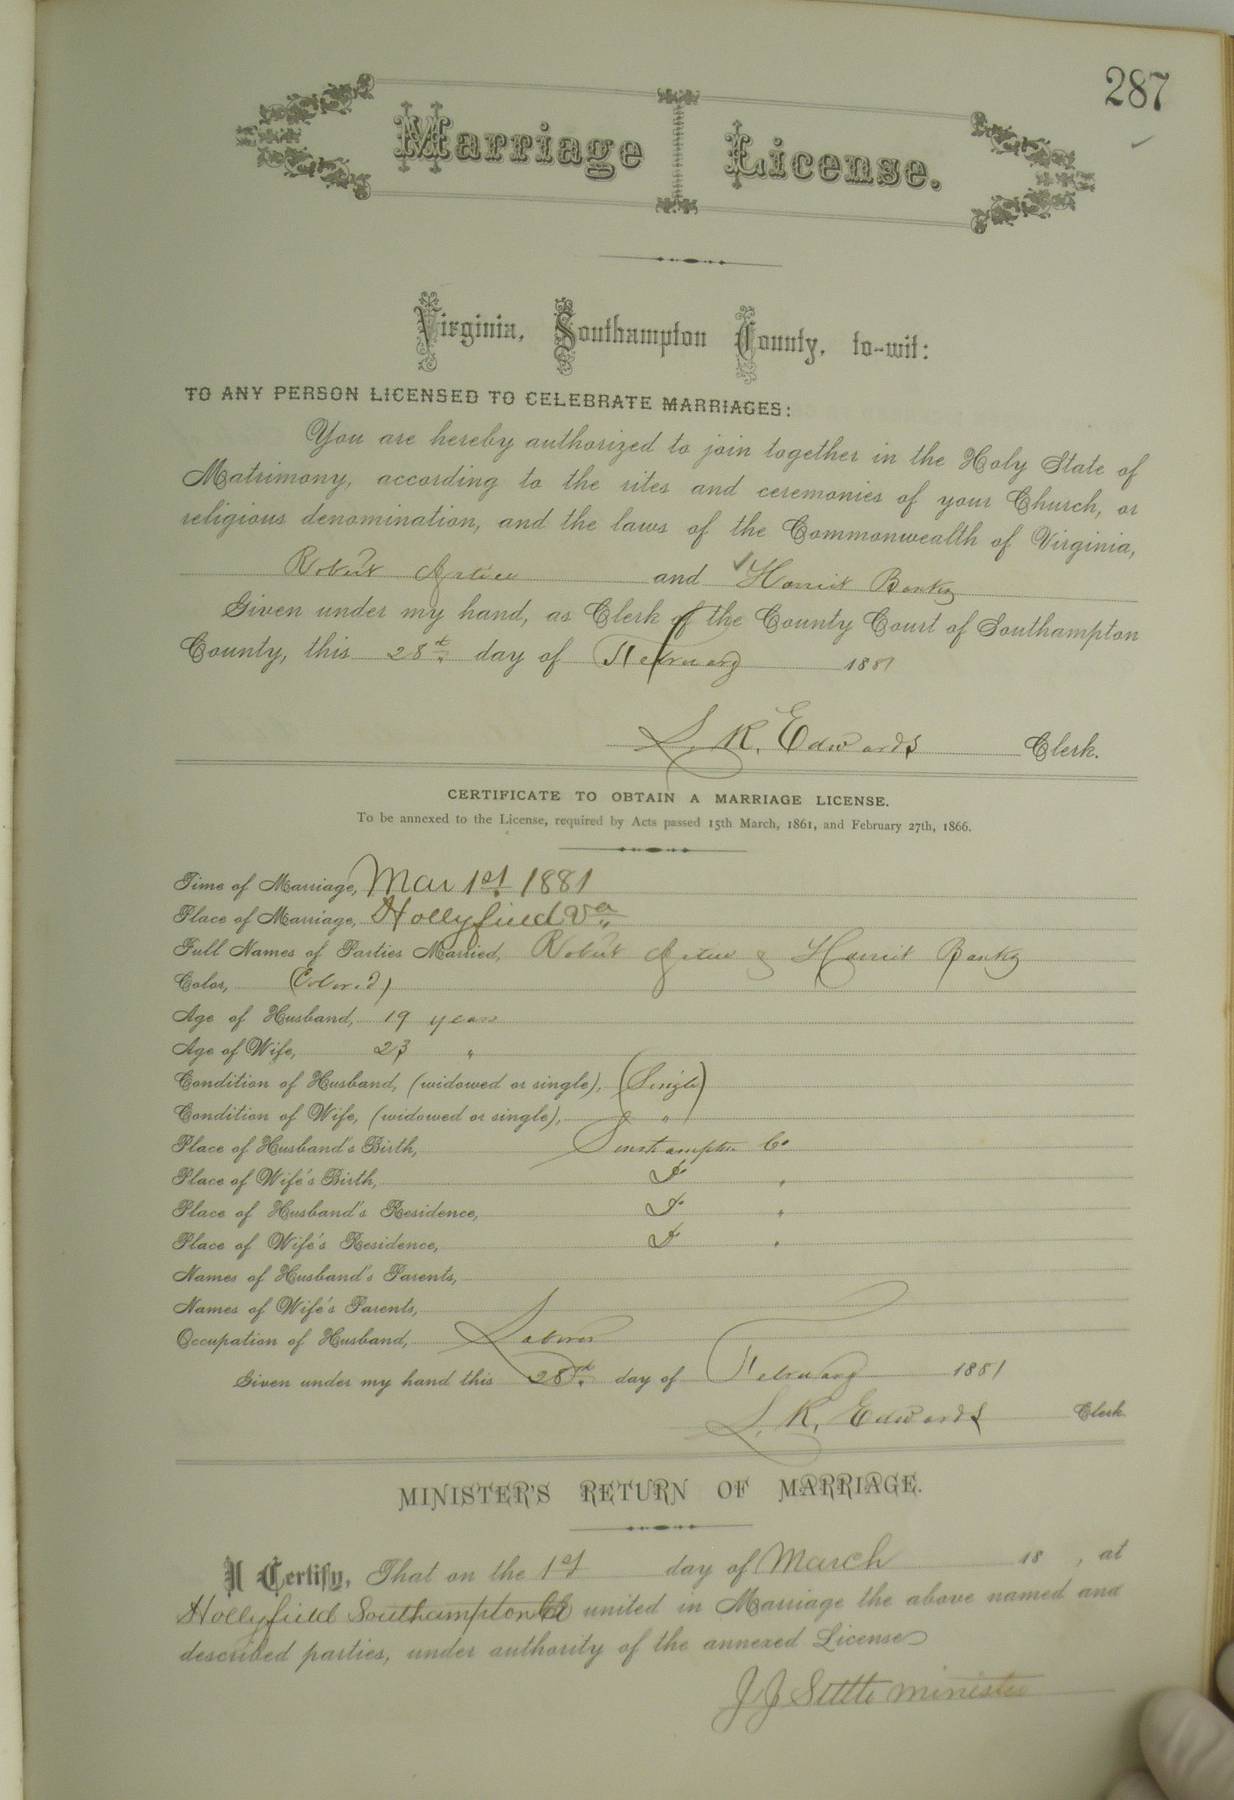 287
Marriage License.
Virginia, Southampton County, to-wit:
TO ANY PERSON LICENSED TO CELEBRATE MARRIAGES:
You are hereby authorized to join together in the Holy State of
Matrimony, according to the rites and ceremonies of your Church, or
religious denomination, and the laws of the Commonwealth of Virginia,
Robert and Harriet Banks
Given under my hand, as Clerk of the County Court of Southampton
County, this 28th day of February 1881
L. R. Edwards Clerk.
CERTIFICATE TO OBTAIN A MARRIAGE LICENSE.
To be annexed to the License, required by Acts passed 15th March, 1861, and February 27th, 1866.
Time of Marriage, Mar 1st 1881
Place of Marriage, Hollyfield Va
Full Names of Parties Married, Robert & Harriet Banks
Color, (Colored)
Age of Husband, 19 years
Age of Wife, 23 "
Condition of Husband, (widowed or single), (Single)
Condition of Wife, (widowed or single), "
Place of Husband's Birth, Southampton Co
Place of Wife's Birth,
Place of Husband's Residence,
Place of Wife's Residence,
Names of Husband's Parents,
Names of Wife's Parents,
Occupation of Husband, Laborer
Given under my hand this 28th day of February 1881
L. R. Edwards Clerk
MINISTER'S RETURN OF MARRIAGE.
I Certify, That on the 1st day of March 18 , at
Hollyfield Southampton Co united in Marriage the above named and
described parties, under authority of the annexed License
J J Settle minister